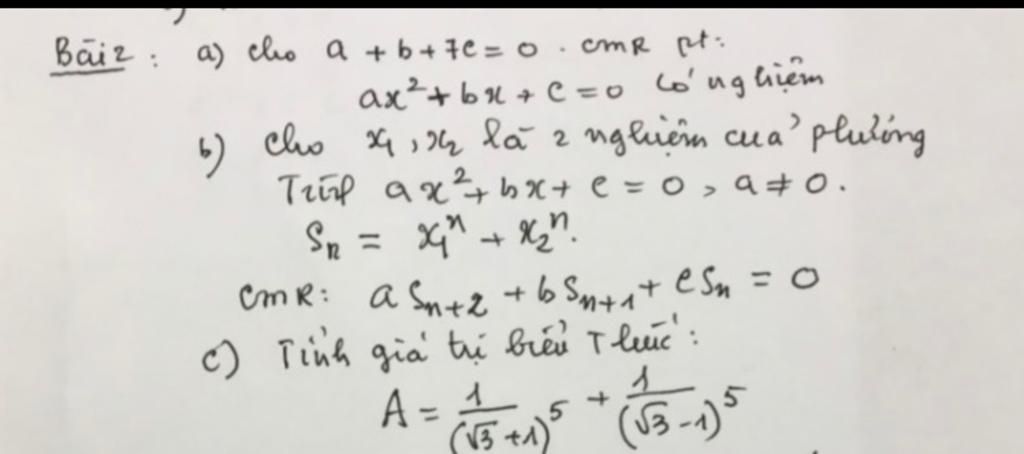 Bài 2 : a) cho a + b + 7c = 0 . CMR pt:
ax² + bx + c = 0 có nghiệm
b) Cho x₁, x₂ là 2 nghiệm của phương
Trình ax² + bx + c = 0, a ≠ 0.
Sₙ = x₁ⁿ + x₂ⁿ.
CMR: a Sₙ₊₂ + b Sₙ₊₁ + c Sₙ = 0
c) Tính giá trị biểu Thức :
A = 1/(√3 + 1)⁵ + 1/(√3 - 1)⁵